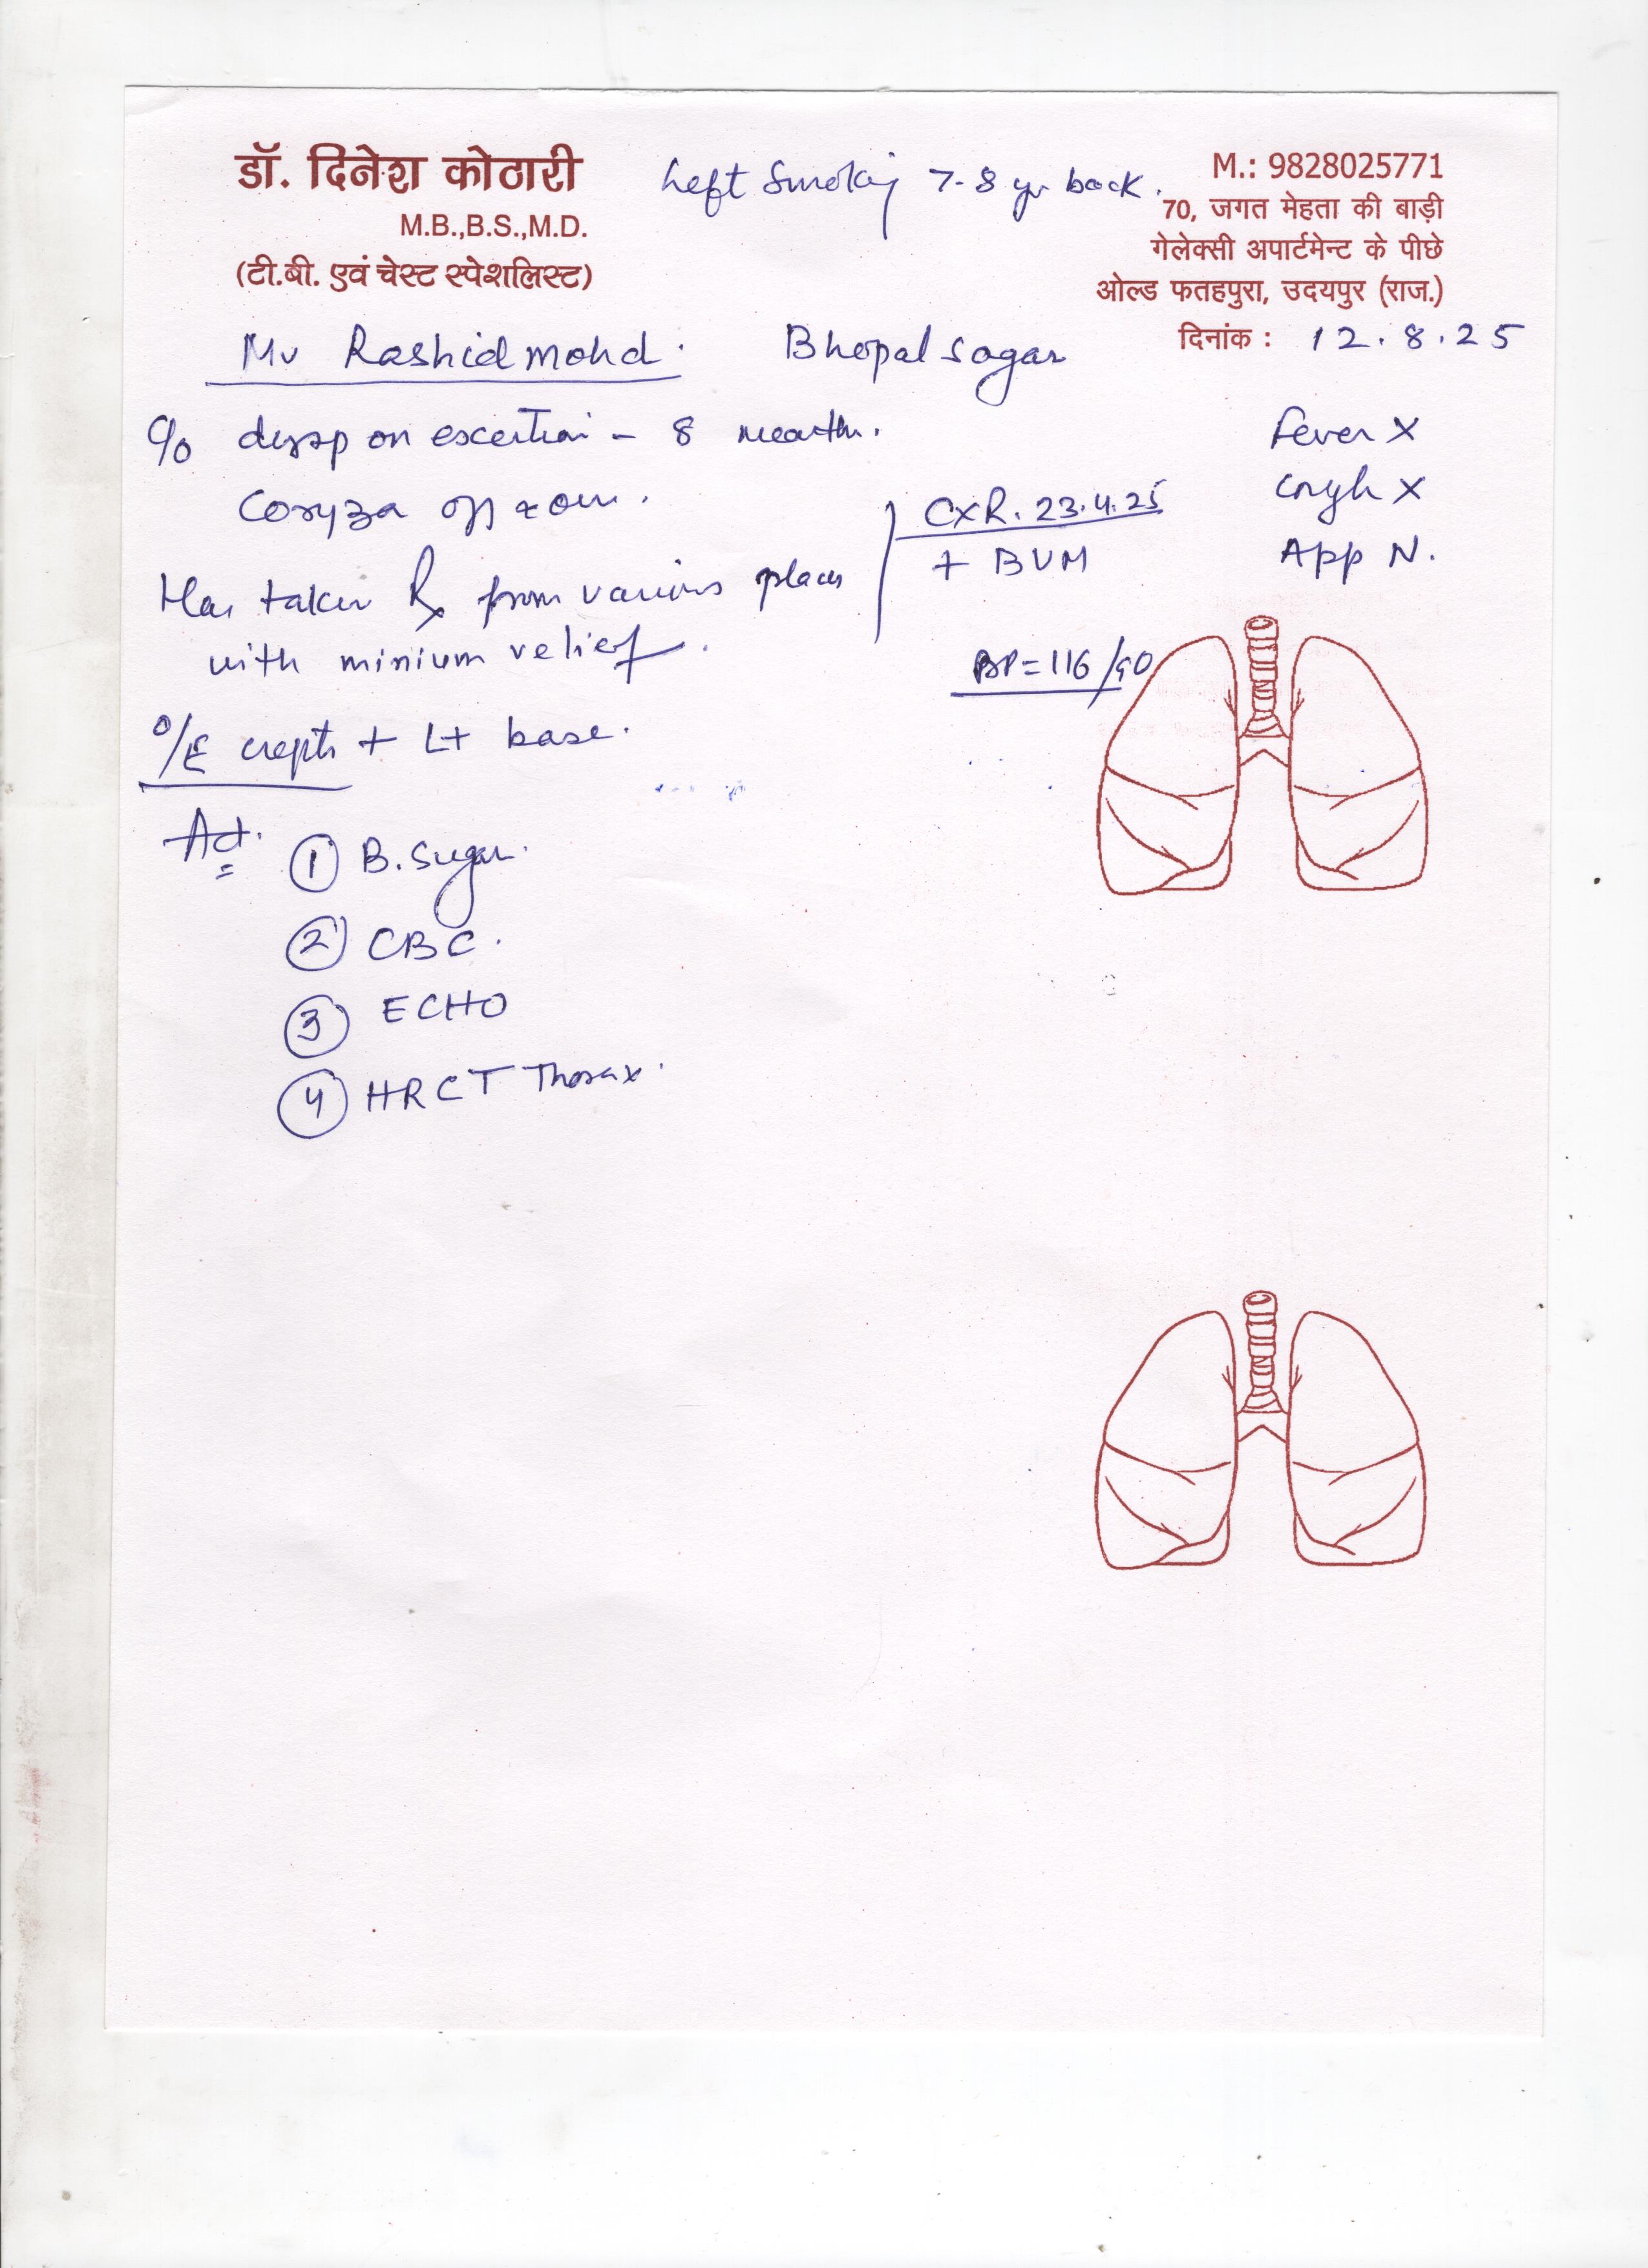 डॉ. दिनेश कोठारी
M.B.,B.S.,M.D.
(टी.बी. एवं चेस्ट स्पेशलिस्ट)
Left Smoking 7-8 yr back.
M.: 9828025771
70, जगत मेहता की बाड़ी
गेलेक्सी अपार्टमेन्ट के पीछे
ओल्ड फतहपुरा, उदयपुर (राज.)
दिनांक : 12.8.25
Mr Rashid mohd. Bhopal sagar
C/o dysp on excertion - 8 month.
Fever X
Coryza off & on.
CXR. 23.4.25
Cough X
+ BVM
App N.
Has taken Rx from various places
with minium relief.
BP=116/90
O/E crepts + Lt base.
Ad.
① B. Sugar.
② CBC.
③ ECHO
④ HRCT Thorax.